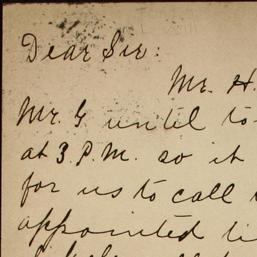 Dear Sir:
Mr. H.
Mr. G until to-
at 3 P.M. so it
for us to call
appointed ti